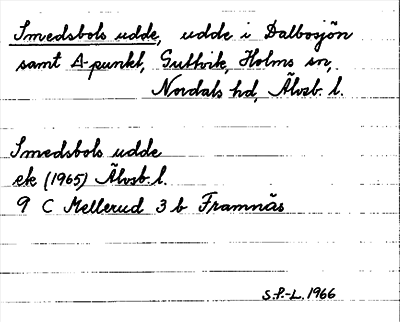 Smedsbols udde, udde i Dalbosjön
samt A-punkt, Guttvik, Holms sn,
Nordals hd, Älvsb. l.
Smedsbols udde
ek (1965) Älvsb. l.
9 C Mellerud 3 b Framnäs
S.P.-L. 1966